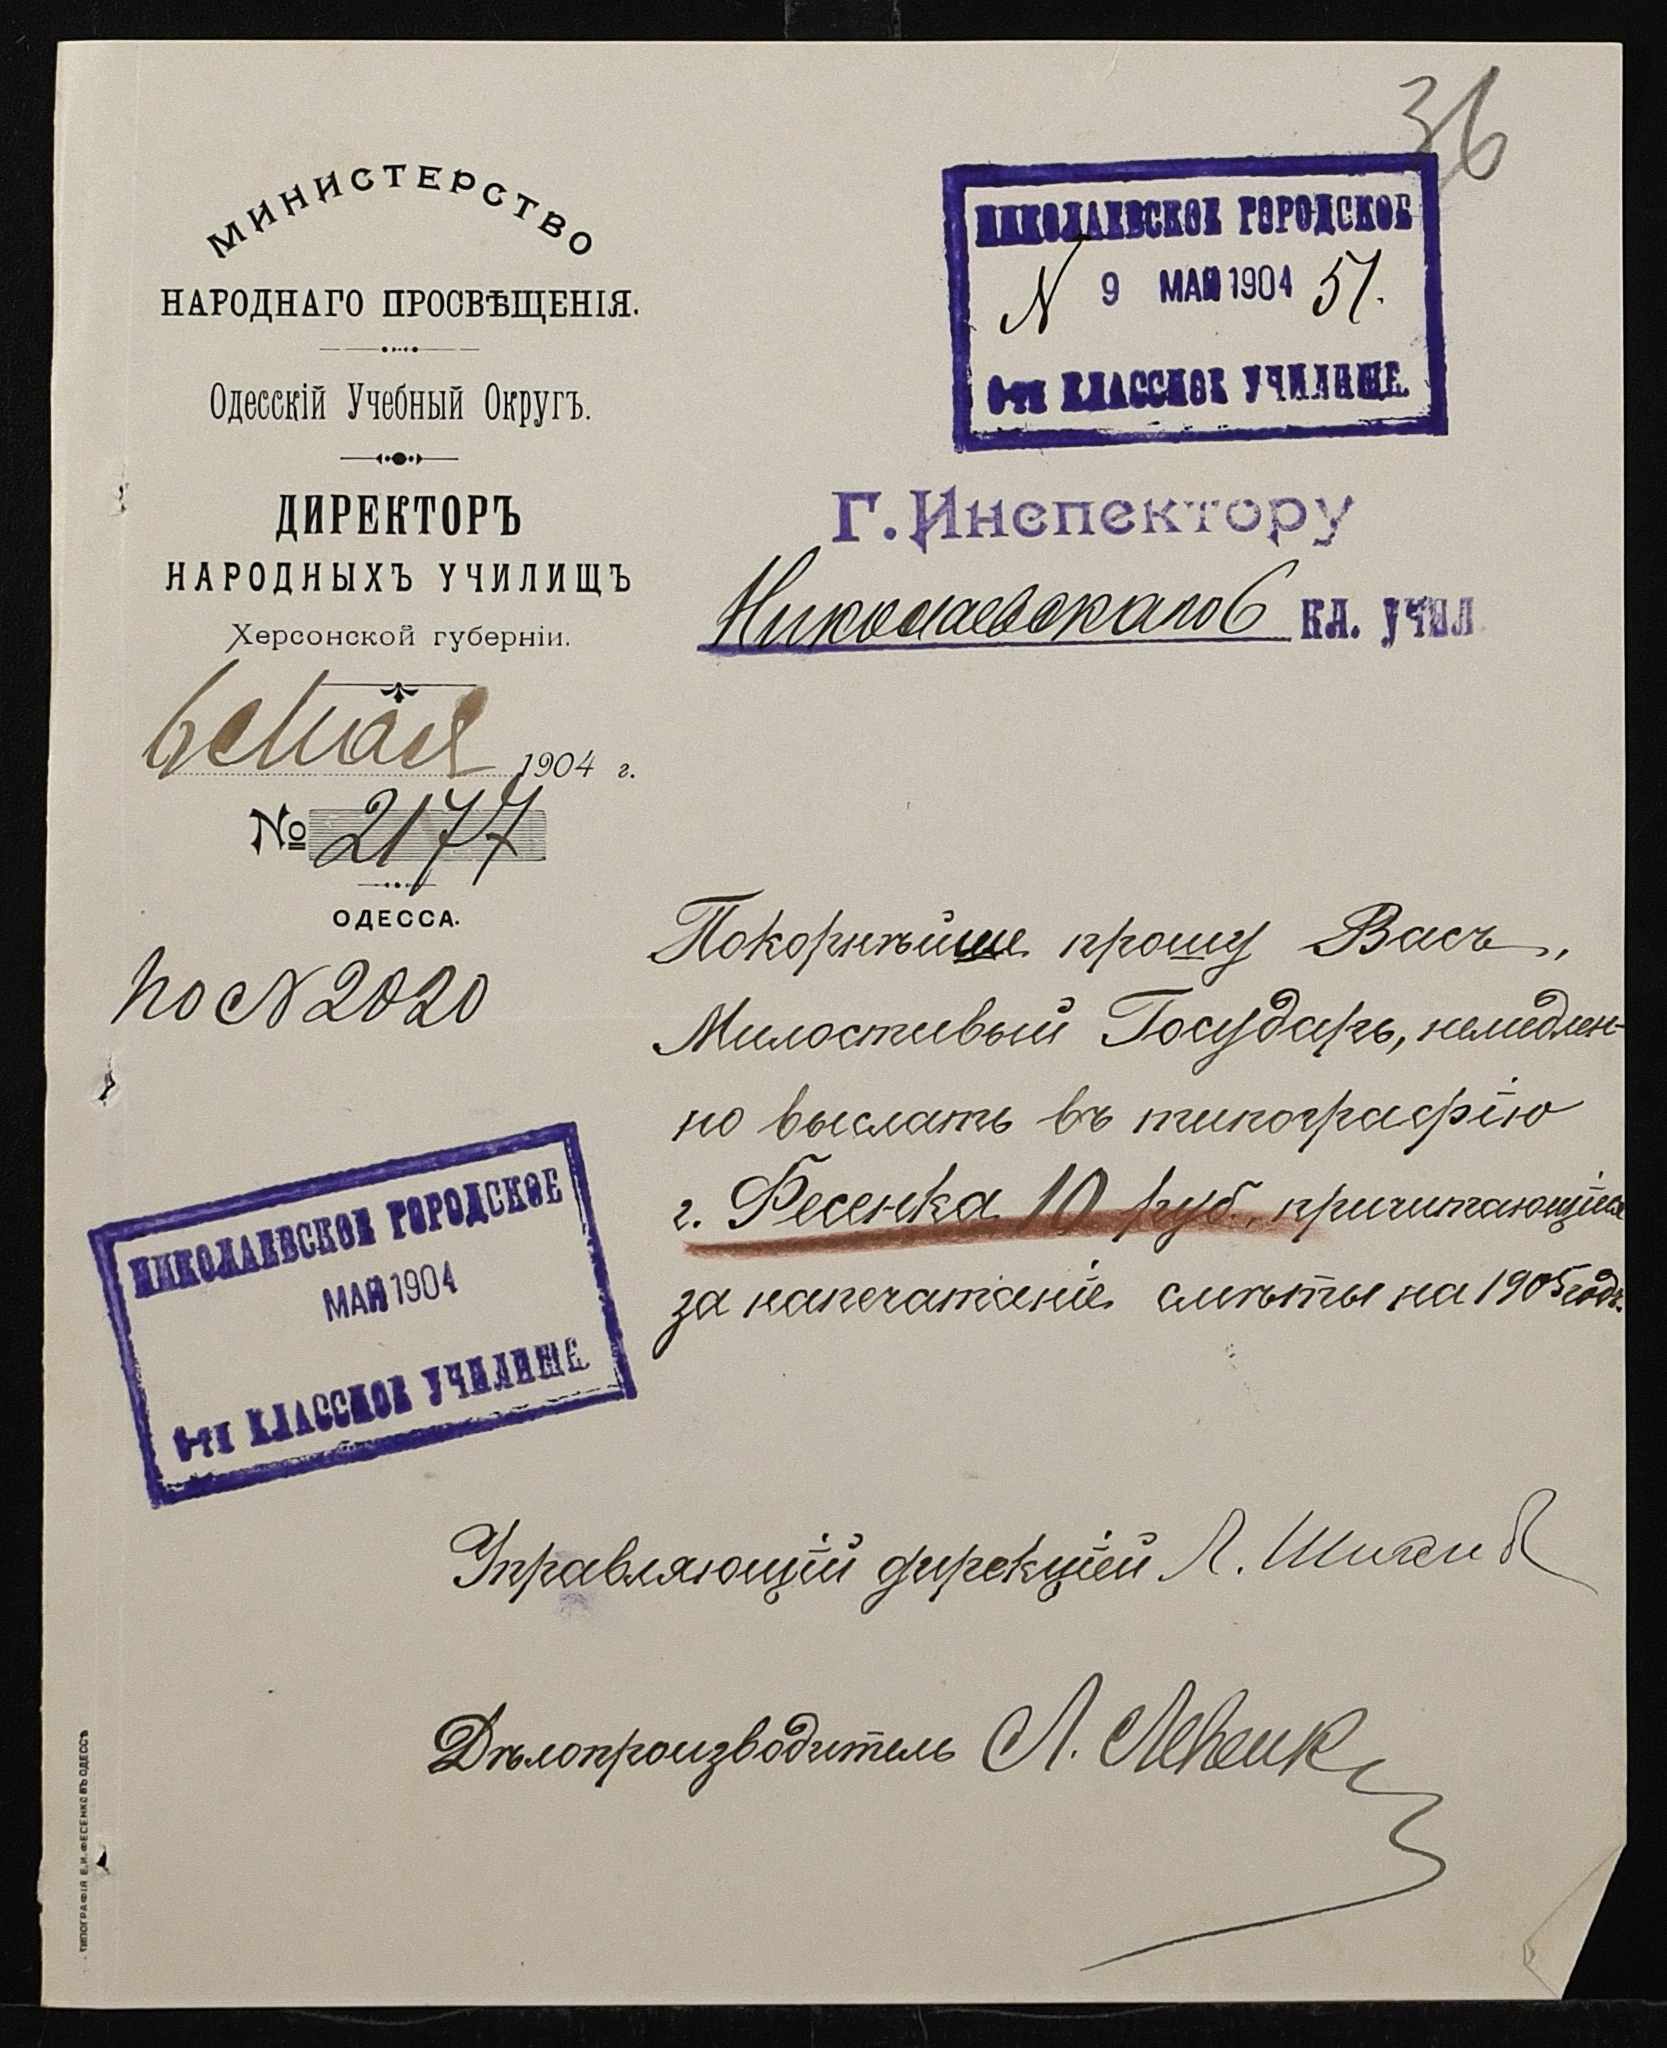 36
МИНИСТЕРСТВО
НАРОДНАГО ПРОСВѢЩЕНІЯ.
Одесскій Учебный Округъ.
ДИРЕКТОРЪ
НАРОДНЫХЪ УЧИЛИЩЪ
Херсонской губерніи.
6 Мая 1904 г.
№ 2177
ОДЕССА.
По № 2020
НИКОЛАЕВСКОЕ ГОРОДСКОЕ
N 9 МАЙ 1904 51.
6-ти КЛАССНОЕ УЧИЛИЩЕ.
Г. Инспектору
Николаевскаго 6 кл. учил.
Покорнѣйше прошу Васъ,
Милостивый Государь, немедлен-
но выслать въ типографію
г. Фесенка 10 руб., причитающіеся
за напечатаніе смѣты на 1905 годъ.
НИКОЛАЕВСКОЕ ГОРОДСКОЕ
МАЙ 1904
6-ти КЛАССНОЕ УЧИЛИЩЕ.
Управляющій дирекціей Л.
Дѣлопроизводитель Л.
ТИПОГРАФІЯ Е. И. ФЕСЕНКО ВЪ ОДЕССѢ